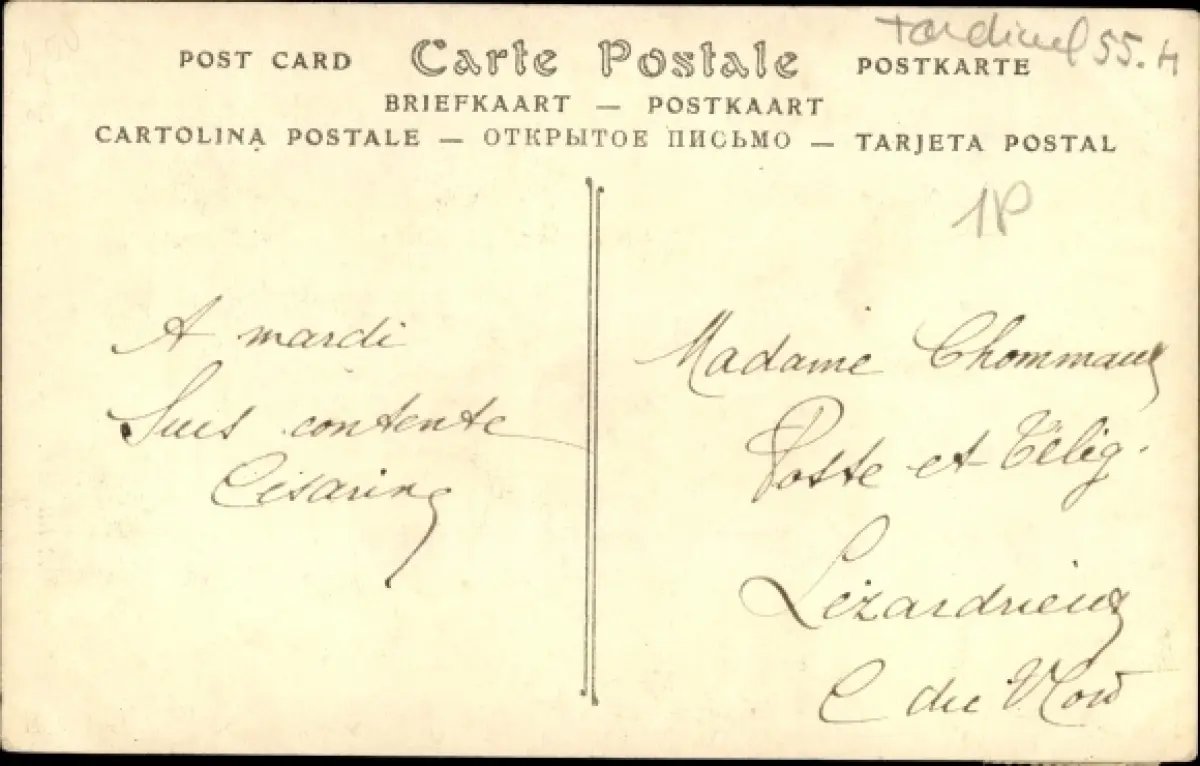 55.H
POST CARD Carte Postale POSTKARTE
BRIEFKAART — POSTKAART
CARTOLINA POSTALE — ОТКРЫТОЕ ПИСЬМО — TARJETA POSTAL
1P
A mardi
Suis contente
Césarine
Madame
Poste et Télég.
Lézardrieux
C du Nord